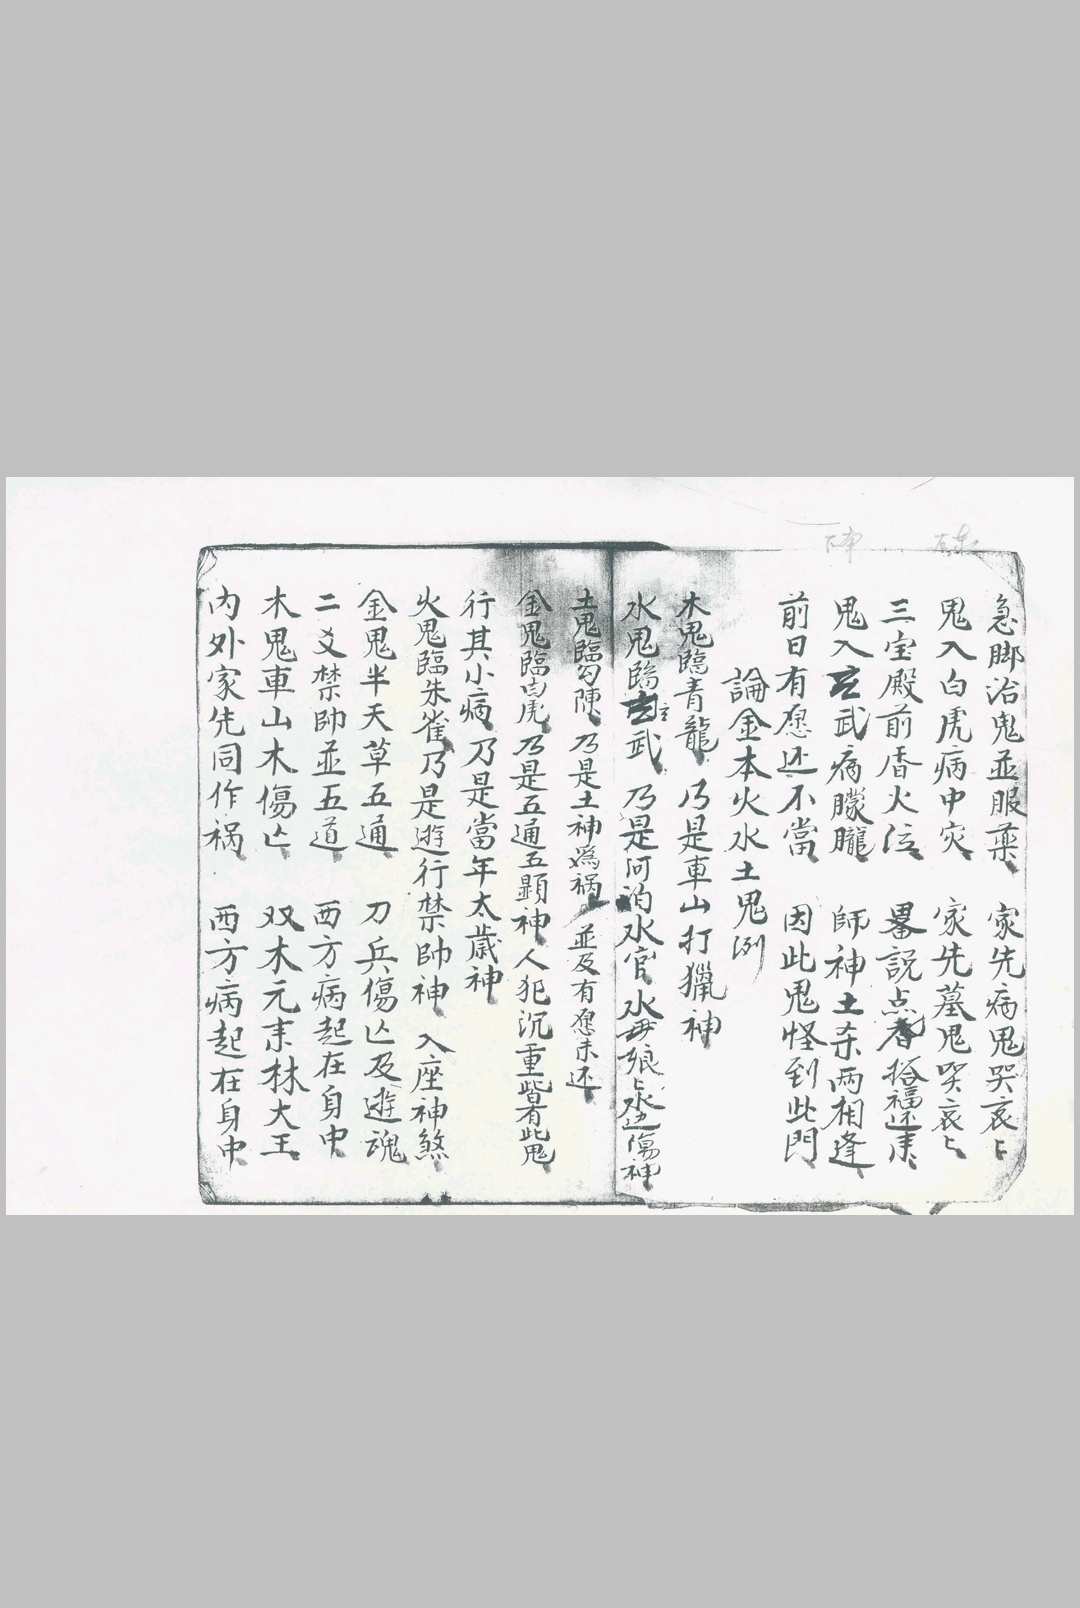 急脚治鬼並服藥 家先病鬼哭哀〻
鬼入白虎病中灾 家先墓鬼哭哀〻
三宝殿前香火位 說点香 福还来
鬼入玄武病朦朧 師神土杀兩相逢
前日有愿还不當 因此鬼怪到此門
論金木火水土鬼例
木鬼臨青龍 乃是車山打獵神
水鬼臨玄武 乃是河泊水官水毋娘〻水边傷神
土鬼臨勾陳 乃是土神爲禍 並及有愿未还
金鬼臨白虎 乃是五通五顕神人犯沉重皆有此鬼
行其小病 乃是當年太歲神
火鬼臨朱雀 乃是遊行禁帥神 入座神煞
金鬼半天草五通 刀兵傷亡及遊魂
二爻禁帥並五道 西方病起在身中
木鬼車山木傷亡 双木元来林大王
內外家先同作禍 西方病起在身中